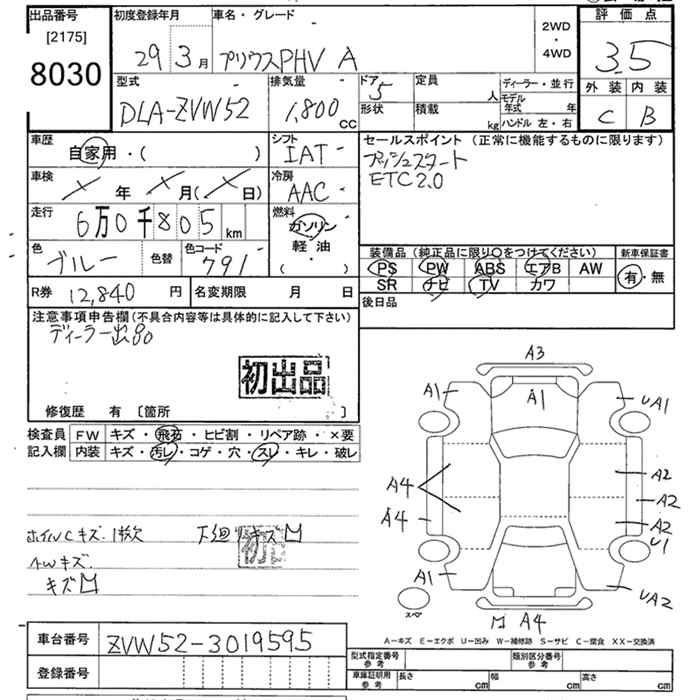 出品番号
[2175]
8030
初度登録年月
29 3月
車名・グレード
プリウスPHV A
2WD
・
4WD
評価点
3.5
外装 内装
C B
型式
DLA-ZVW52
排気量
1,800 CC
ドア 5
形状
定員 人
積載 kg
ディーラー・並行
モデル年式 年
ハンドル 左・右
車歴
自家用・( )
シフト
IAT
車検
× 年 × 月(× 日)
冷房
AAC
走行
6万0千805 km
燃料
ガソリン
軽・油
( ・ )
色
ブルー
色替
色コード
791
セールスポイント(正常に機能するものに限ります)
プッシュスタート
ETC2.0
装備品(純正品に限り○をつけてください)
PS PW ABS エアB AW
SR ナビ TV カワ
新車保証書
有・無
R券 12,840 円
名変期限 月 日
後日品
注意事項申告欄(不具合内容等は具体的に記入して下さい)
ディーラー出品
初出品
修復歴 有 [箇所 ]
検査員
記入欄
FW キズ・飛石・ヒビ割・リペア跡・×要
内装 キズ・汚レ・コゲ・穴・スレ・キレ・破レ
ホイルCキズ.1枚欠
下廻りキズ
AWキズ.
キズ
A3
A1
A1
UA1
A4
A4
A2
A2
A2
U1
A1
UA2
スペア
A4
A-キズ E-エクボ U-凹み W-補修跡 S-サビ C-腐食 XX-交換済
車台番号
ZVW52-3019595
登録番号
型式指定番号
参考
類別区分番号
参考
車庫証明用
参考
長さ cm
幅 cm
高さ cm